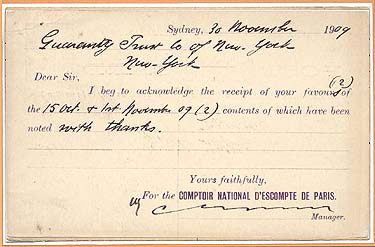 Sydney, 30 November 1909
Guaranty Trust Co of New-York
New-York
Dear Sir,
I beg to acknowledge the receipt of your favours (2) of
the 15 Oct. & 1st November 09 (2) contents of which have been
noted with thanks.
Yours faithfully,
For the COMPTOIR NATIONAL D'ESCOMPTE DE PARIS.
Manager.